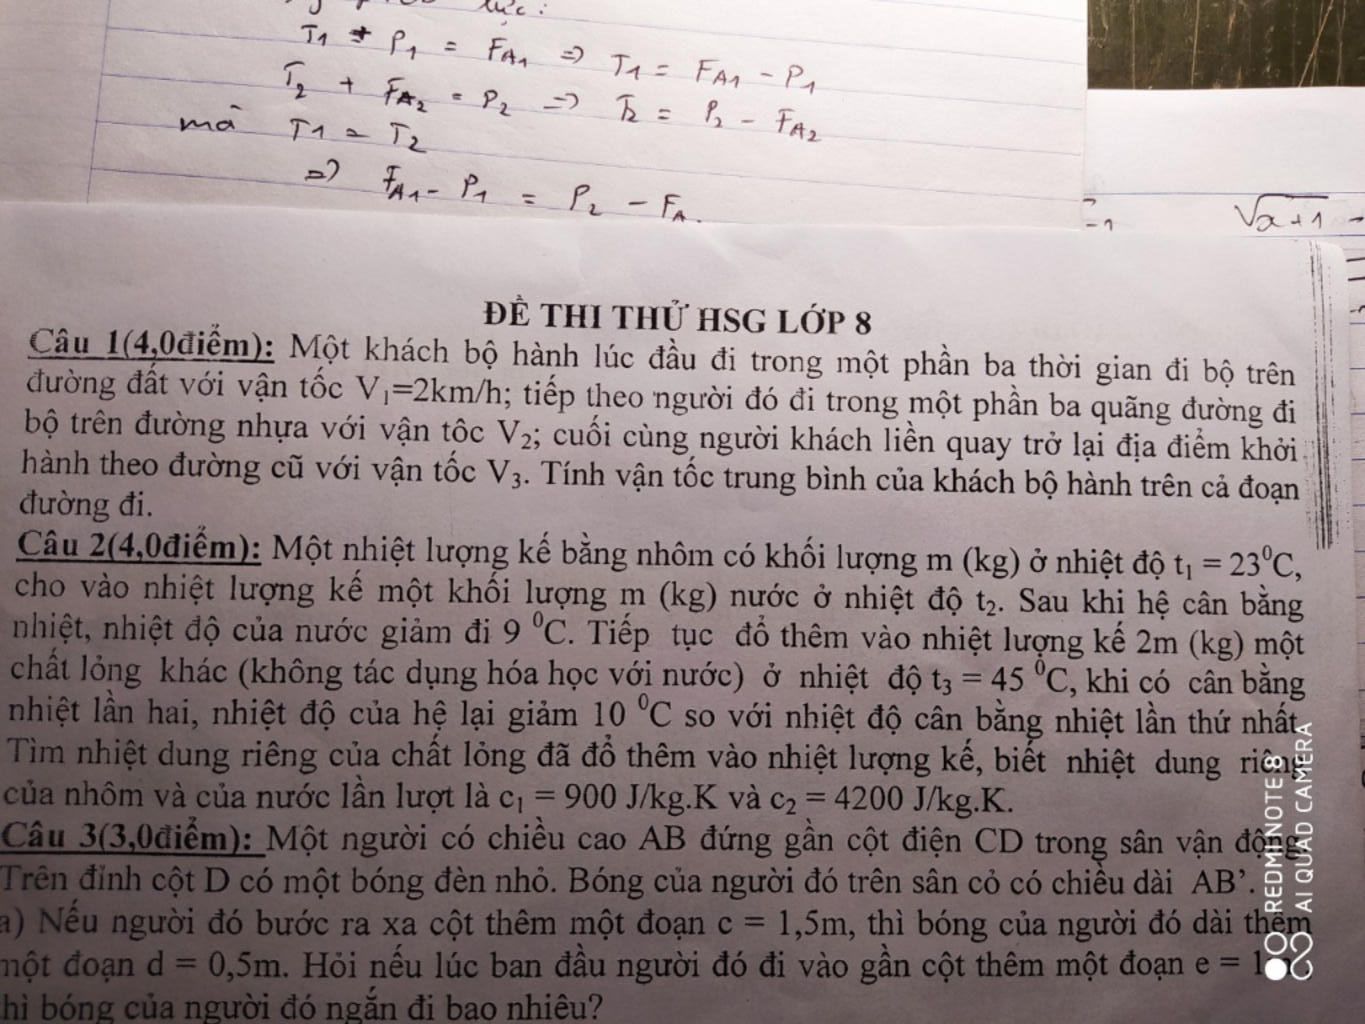 lực:
T1 + P1 = FA1 => T1 = FA1 - P1
T2 + FA2 = P2 => T2 = P2 - FA2
mà T1 = T2
=> FA1 - P1 = P2 - FA
√x+1
ĐỀ THI THỬ HSG LỚP 8
Câu 1(4,0điểm): Một khách bộ hành lúc đầu đi trong một phần ba thời gian đi bộ trên
đường đất với vận tốc V1=2km/h; tiếp theo người đó đi trong một phần ba quãng đường đi
bộ trên đường nhựa với vận tôc V2; cuối cùng người khách liền quay trở lại địa điểm khởi
hành theo đường cũ với vận tốc V3. Tính vận tốc trung bình của khách bộ hành trên cả đoạn
đường đi.
Câu 2(4,0điểm): Một nhiệt lượng kế bằng nhôm có khối lượng m (kg) ở nhiệt độ t1 = 23⁰C,
cho vào nhiệt lượng kế một khối lượng m (kg) nước ở nhiệt độ t2. Sau khi hệ cân bằng
nhiệt, nhiệt độ của nước giảm đi 9 ⁰C. Tiếp tục đổ thêm vào nhiệt lượng kế 2m (kg) một
chất lỏng khác (không tác dụng hóa học với nước) ở nhiệt độ t3 = 45 ⁰C, khi có cân bằng
nhiệt lần hai, nhiệt độ của hệ lại giảm 10 ⁰C so với nhiệt độ cân bằng nhiệt lần thứ nhất.
Tìm nhiệt dung riêng của chất lỏng đã đổ thêm vào nhiệt lượng kế, biết nhiệt dung riêng
của nhôm và của nước lần lượt là c1 = 900 J/kg.K và c2 = 4200 J/kg.K.
Câu 3(3,0điểm): Một người có chiều cao AB đứng gần cột điện CD trong sân vận động.
Trên đỉnh cột D có một bóng đèn nhỏ. Bóng của người đó trên sân cỏ có chiều dài AB'.
a) Nếu người đó bước ra xa cột thêm một đoạn c = 1,5m, thì bóng của người đó dài thêm
một đoạn d = 0,5m. Hỏi nếu lúc ban đầu người đó đi vào gần cột thêm một đoạn e =
thì bóng của người đó ngắn đi bao nhiêu?
REDMI NOTE 8
AI QUAD CAMERA